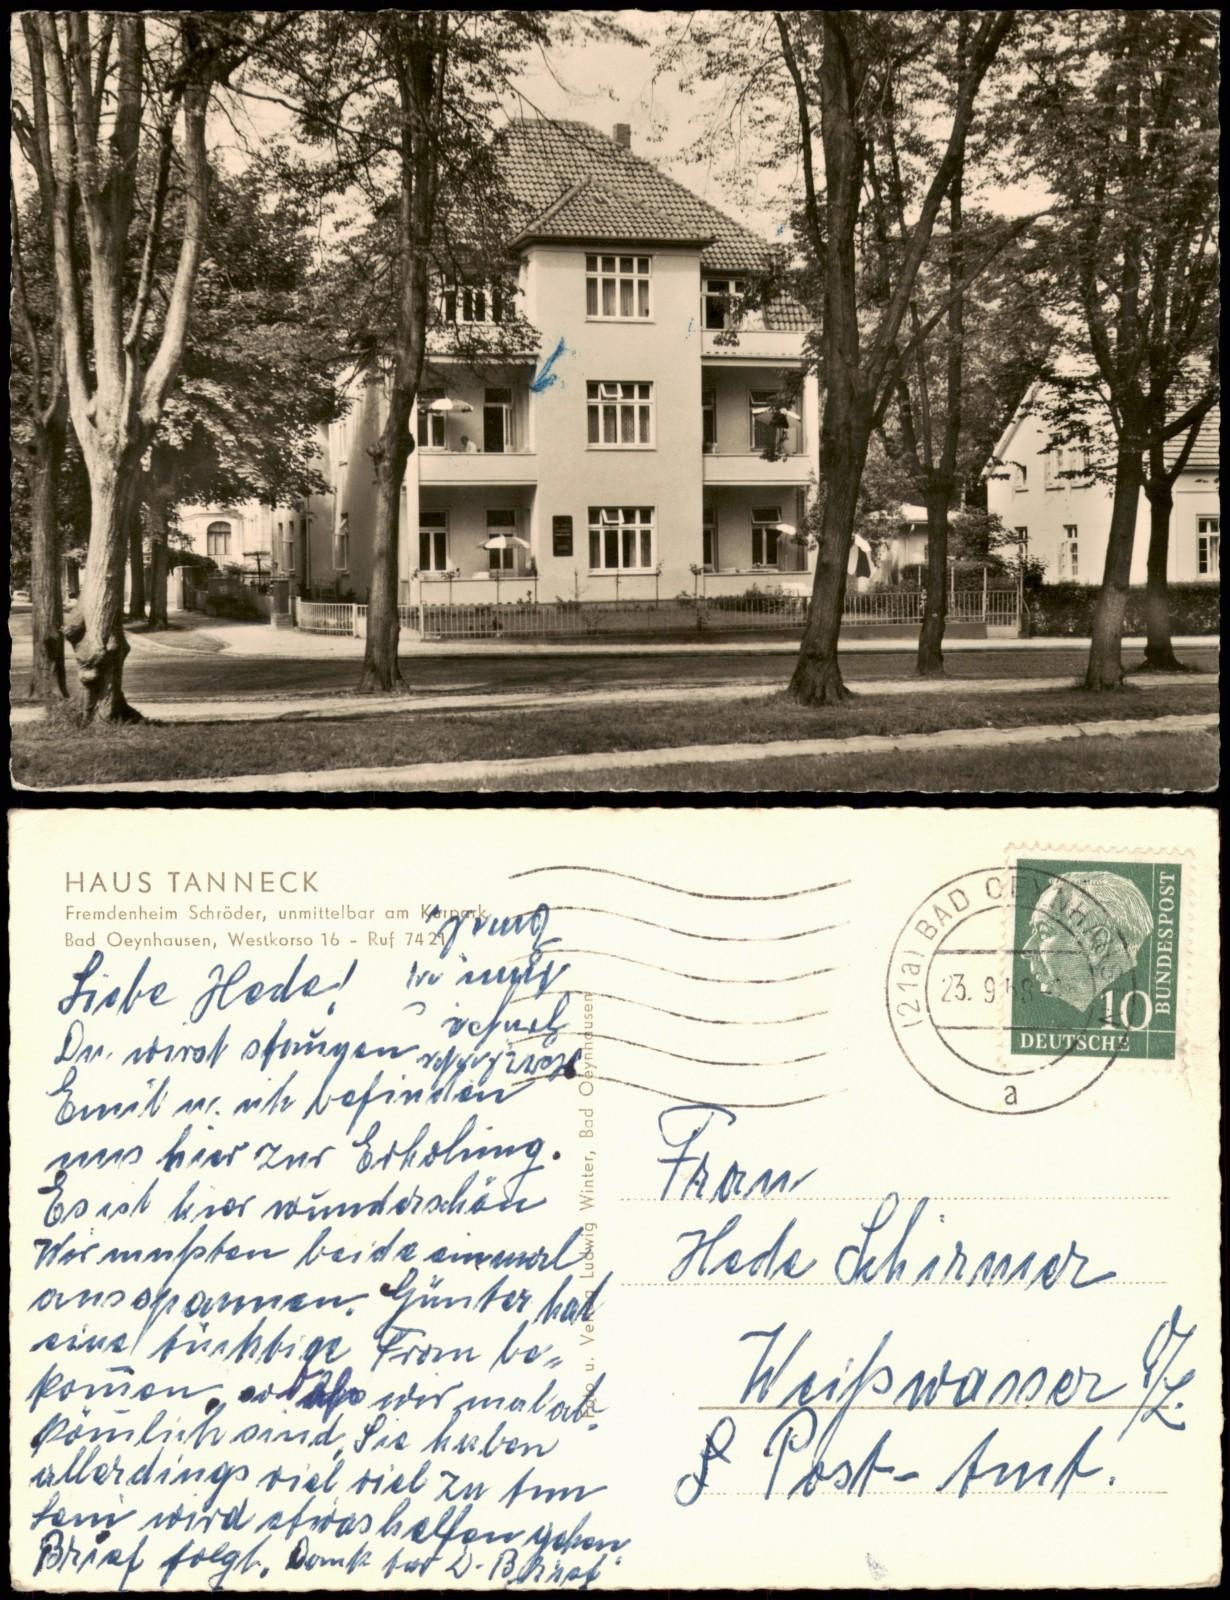 HAUS TANNECK
Fremdenheim Schröder, unmittelbar am Kurpark
Bad Oeynhausen, Westkorso 16 - Ruf 7421
Liebe Hede!
Du wirst staunen
Emil u. ich befinden
uns hier zur Erholung.
Es ist hier wunderschön
Wir mußten beide einmal
ausspannen. Günter hat
eine tüchtige Frau be-
kom̄en, wir mal ab-
köm̄lich sind, Sie haben
allerdings viel viel zu tun
wird etwas helfen gehen
Brief folgt. Dank für D. Brief
Foto u. Verlag Ludwig Winter, Bad Oeynhausen
(21a) BAD OEYNHAUSEN
23. 9. 58
a
10
DEUTSCHE
BUNDESPOST
Frau
Hede Schirmer
Weißwasser O/L.
Post-Amt.